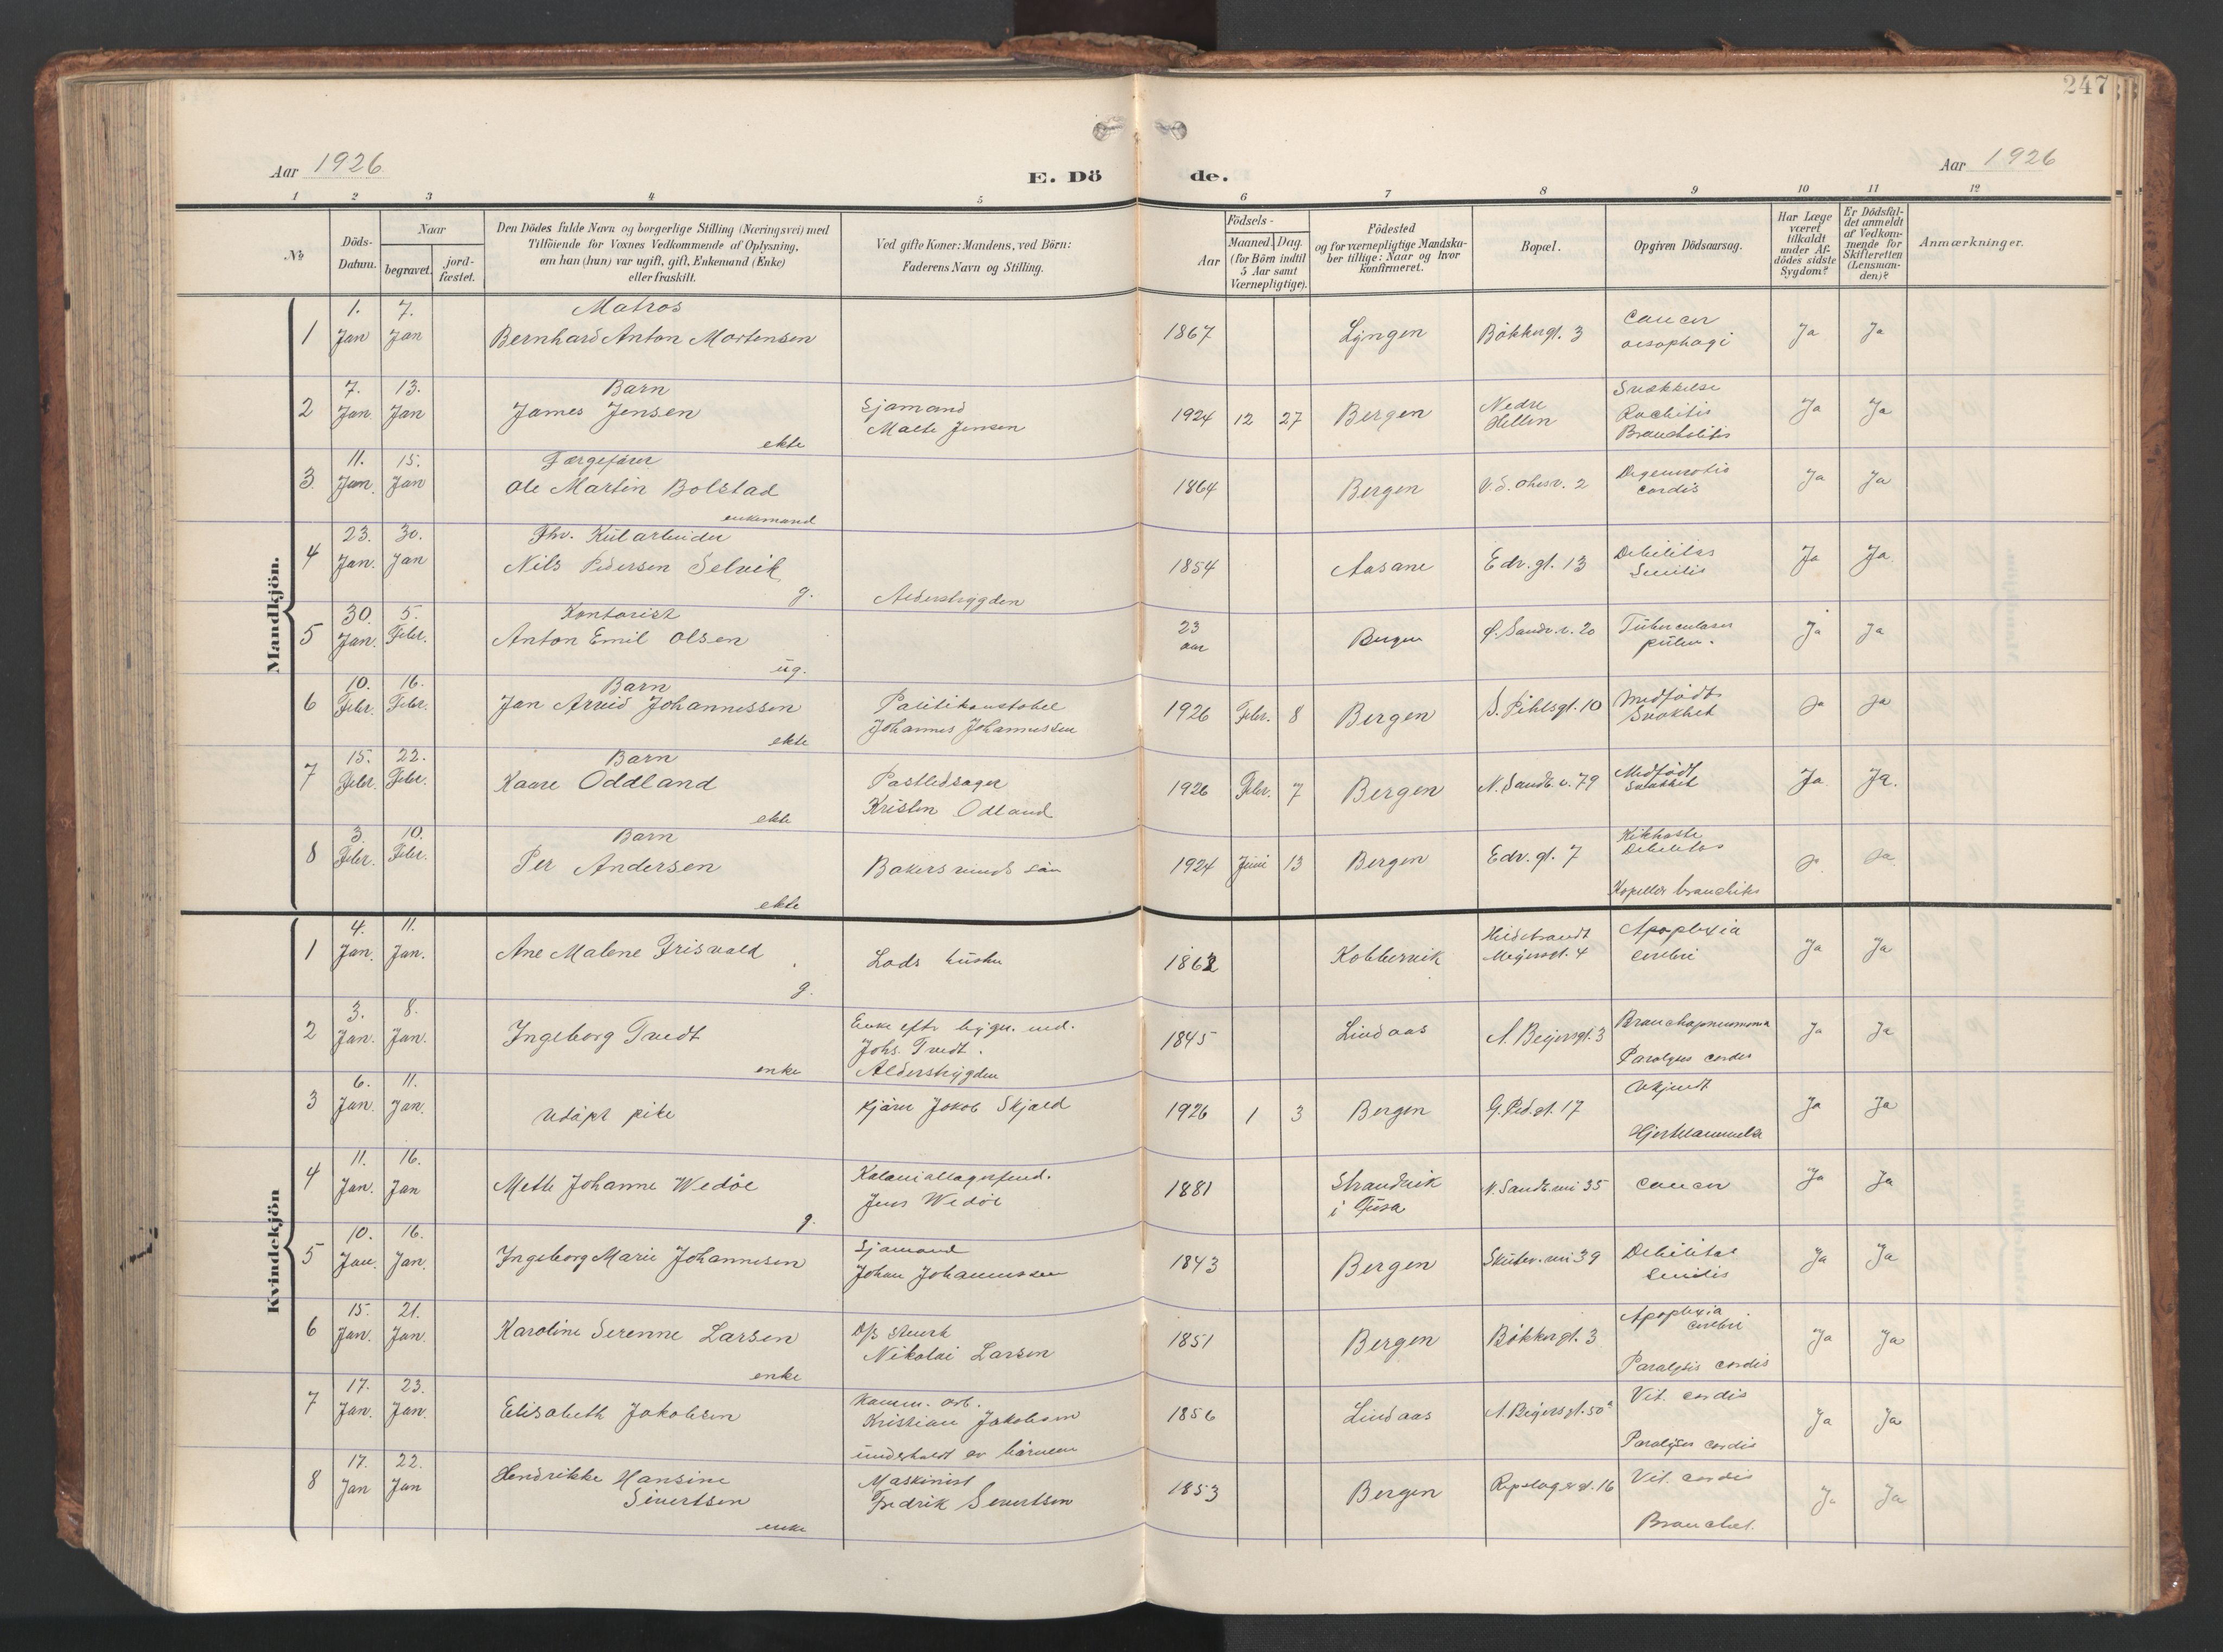 247
Aar 1926
E. Dö
de.
Aar 1926
1 2 3 4 5 6 7 8 9 10 11 12
№
Döds-
Datum.
Naar
begravet.
jord-
fæstet.
Den Dödes fulde Navn og borgerlige Stilling (Næringsvei) med
Tilföiende for Voxnes Vedkommende af Oplysning,
om han (hun) var ugift, gift, Enkemand (Enke)
eller fraskilt.
Ved gifte Koner: Mandens, ved Börn:
Faderens Navn og Stilling.
Födsels-
Aar
Maaned. Dag.
(for Börn indtil
5 Aar samt
Værnepligtige).
Födested
og for værnepligtige Mandska-
ber tillige: Naar og hvor
konfirmeret.
Bopæl.
Opgiven Dödsaarsag.
Har Læge
været
tilkaldt
under Af-
dödes sidste
Sygdom?
Er Dödsfal-
det anmeldt
af Vedkom-
mende for
Skifteretten
(Lensman-
den)?
Anmærkninger.
Mandkjön.
1
1. Jan
7. Jan
Matros
Bernhard Anton Mortensen
1867
Lyngen
Bökkergt. 3
Cancer
oesophagi
Ja
Ja
2
7. Jan
13. Jan
Barn
James Jensen
ekte
Sjømand
Malte Jensen
1924 12 27
Bergen
Nedre
Hellen
Svækkelse
Rachitis
Ja
Ja
3.
11. Jan.
15. Jan
Færgefører
Ole Martin Bolstad
enkemand
1864
Bergen
cordis
Ja
Ja
4
23. Jan.
30. Jan
Fhv. Kularbeider
Nils Pedersen Selvik
g.
Alderstrygden
1854
Aasane
Edv. gt. 13
Debilitas
Senilis
Ja
Ja
5
30. Jan.
5. Febr.
Kontorist
Anton Emil Olsen
ug.
23
aar
Bergen
Ø. Sandv. v. 20
pulm.
Ja
Ja
6
10. Febr.
16. Febr.
Barn
Jan Arvid Johannessen
ekte
Politikonstabel
Johannes Johannessen
1926 Febr. 8
Bergen
S. Pihlsgt. 10
Medfødt
Svakhet
Ja
Ja
7
15. Febr.
22. Febr.
Barn
Kaare Oddland
ekte
Postledsager
Kristen Odland
1926 Febr. 7
Bergen
N. Sandv. v. 79
Medfødt
Svakhet
Ja
Ja.
8
3. Febr.
10. Febr.
Barn
Per Andersen
ekte
Bakersvends søn
1924 Juni 13
Bergen
Edv. gt. 7
Kikhoste
Debilitas
Ja
Ja
Kvindekjön
1
4. Jan.
11. Jan.
Ane Malene Frisvold
g.
Lods hustru
1862
Kobbervik
Hildebrandt
Meyersgt. 4
Apoplexia
cerebri
Ja
Ja
2
3. Jan.
8. Jan.
Ingeborg Tvedt
enke
Enke eftr bygn. snd.
Johs. Tvedt.
Alderstrygden
1845
Lindaas
A. Beyersgt. 3
Bronchopneumonia
Paralyses cordis
Ja
Ja
3
6. Jan.
11. Jan.
Udøpt pike
Kjører Jakob Skjold
1926 1 3
Bergen
G. Ped. gt. 17
Ukjendt
Hjertelammelse
Ja
Ja
4
11. Jan.
16. Jan
Mette Johanne Wedøe
g.
Jens Wedøe
1881
Strandvik
i Fusa
N. Sandv. vei 35
Cancer
Ja
Ja
5
10. Jan.
16. Jan.
Ingeborg Marie Johannesen
Sjømand
Johan Johannessen
1843
Bergen
Skutev. vei 39
Debilitas
Senilis
Ja
Ja
6
15. Jan.
21. Jan.
Karoline Serenne Larsen
enke
D/s stuert
Nikolai Larsen
1851
Bergen
Bökkergt. 3
Apoplexia
cerebri
Paralysis cordis
Ja
Ja
7
17. Jan.
23. Jan.
Elisabeth Jakobsen
Komm. arb.
Kristian Jakobsen
underholdt av børnene
1856
Lindaas
A. Beyersgt. 50a
Vit. cordis
Paralyses cordis
Ja
Ja
8
17. Jan
22. Jan
Hendrikke Hansine
Sivertsen
enke
Maskinist
Fredrik Sivertsen
1853
Bergen
Repslagergt. 16
Vit. cordis
Bronchit.
Ja
Ja